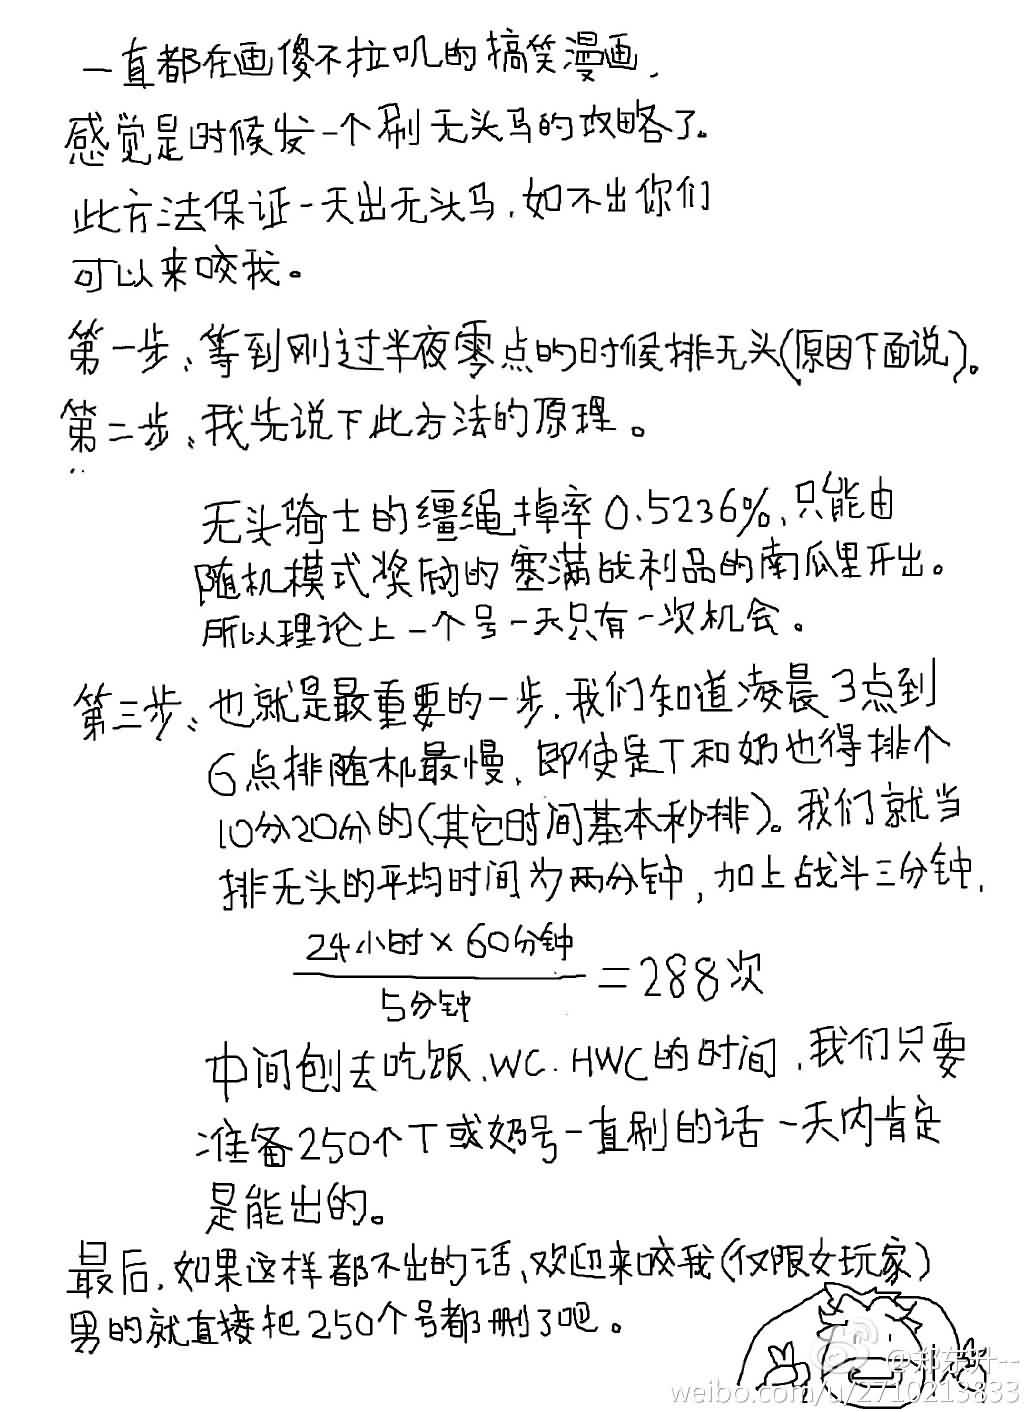 一直都在画傻不拉叽的搞笑漫画，
感觉是时候发一个刷无头马的攻略了。
此方法保证一天出无头马，如不出你们
可以来咬我。
第一步、等到刚过半夜零点的时候排无头(原因下面说)。
第二步、我先说下此方法的原理。
无头骑士的缰绳掉率0.5236%，只能由
随机模式奖励的塞满战利品的南瓜里开出。
所以理论上一个号一天只有一次机会。
第三步、也就是最重要的一步，我们知道凌晨3点到
6点排随机最慢，即使是T和奶也得排个
10分20分的(其它时间基本秒排)。我们就当
排无头的平均时间为两分钟，加上战斗三分钟，
24小时×60分钟
5分钟
=288次
中间刨去吃饭、WC、HWC的时间，我们只要
准备250个T或奶号一直刷的话一天内肯定
是能出的。
最后，如果这样都不出的话、欢迎来咬我(仅限女玩家)
男的就直接把250个号都删了吧。
@郑东升--
weibo.com/u/2710219833